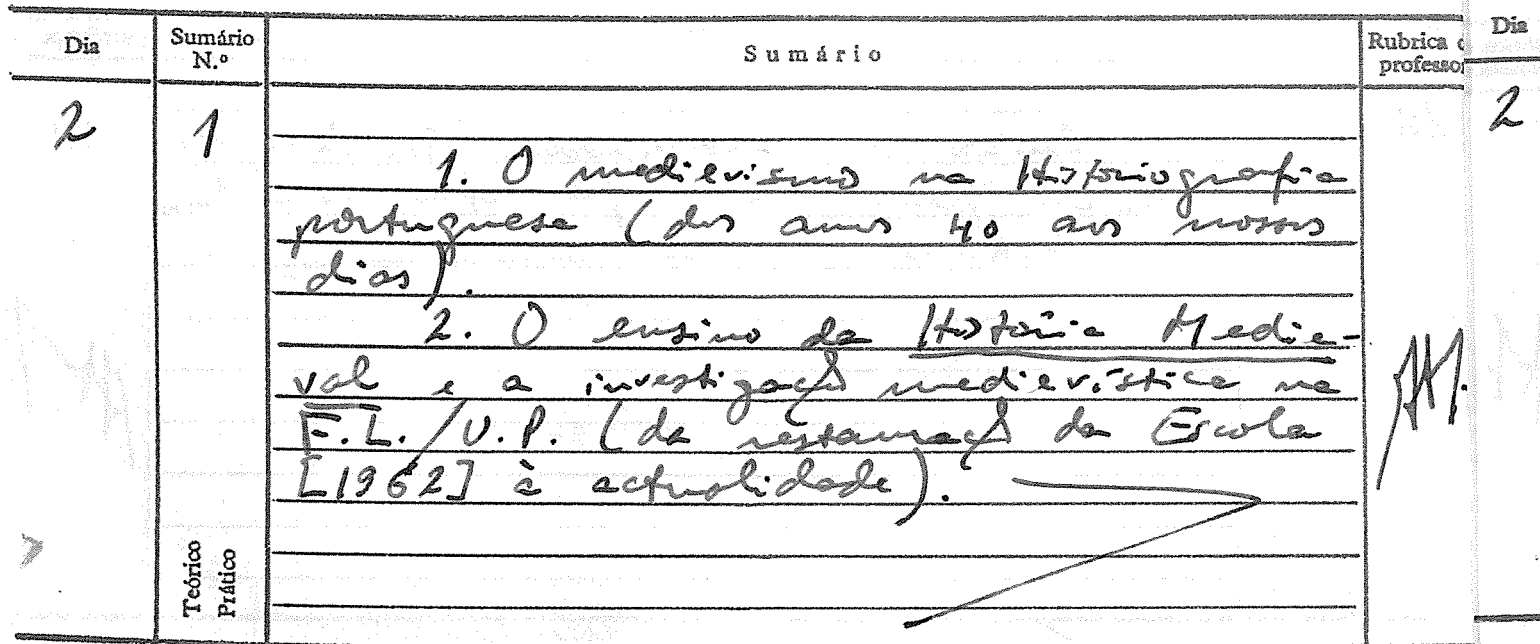 Dia
Sumário
N.º
Sumário
Rubrica d
professor
Dia
2
1
2
1. O medievismo na Historiografia
portuguesa (dos anos 40 aos nossos
dias).
2. O ensino da História Medie-
val e a investigação medievística na
F.L./U.P. (da restauração da Escola
[1962] à actualidade).
Teórico
Prático